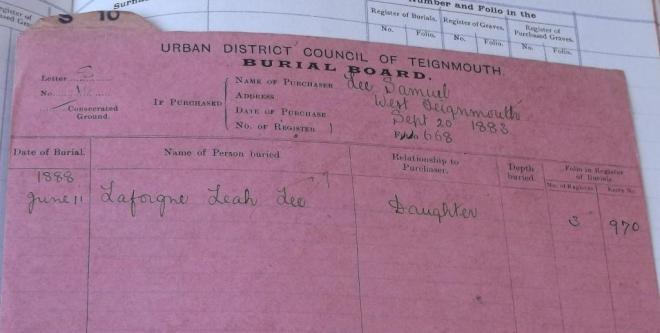 Number and Folio in the
Register of Burials. Register of Graves. Register of Purchased Graves.
No. Folio. No. Folio. No. Folio.
S 10
URBAN DISTRICT COUNCIL OF TEIGNMOUTH.
BURIAL BOARD.
Letter S
No.
Consecrated Ground.
IF PURCHASED
NAME OF PURCHASER Lee Samuel
ADDRESS West Teignmouth
DATE OF PURCHASE Sept 20 1883
NO. OF REGISTER Folio 668
Date of Burial. Name of Person buried Relationship to Purchaser. Depth buried. Folio in Register of Burials.
No. of Register. Entry No.
1888
June 11 Laforgne Leah Lee ? Daughter 3 970